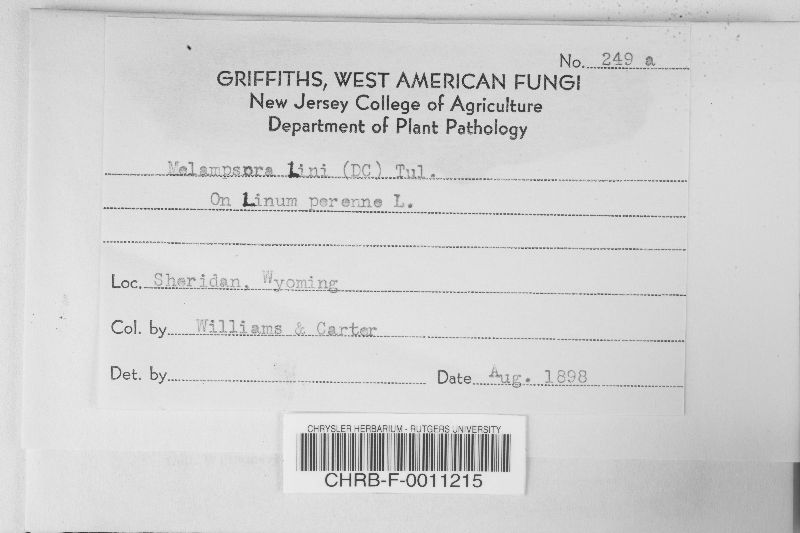 No. 249 a
GRIFFITHS, WEST AMERICAN FUNGI
New Jersey College of Agriculture
Department of Plant Pathology
Melampsora Lini (DC) Tul.
On Linum perenne L.
Loc. Sheridan, Wyoming
Col. by Williams & Carter
Det. by
Date Aug. 1898
CHRYSLER HERBARIUM - RUTGERS UNIVERSITY
CHRB-F-0011215